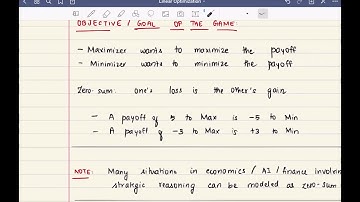 Linear Optimization
OBJECTIVE / GOAL OF THE GAME:
- Maximizer wants to maximize the payoff
- Minimizer wants to minimize the payoff
Zero-sum: one's loss is the other's gain
- A payoff of 5 to Max is -5 to Min
- A payoff of -3 to Max is +3 to Min
NOTE: Many situations in economics / AI / finance involving
strategic reasoning can be modeled as zero-sum